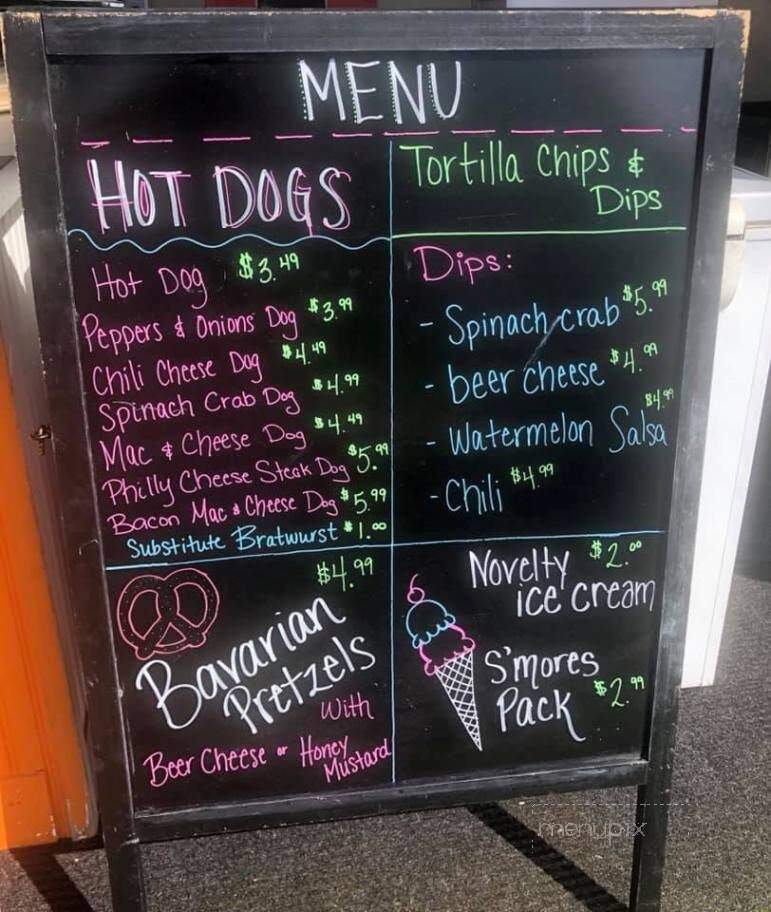 MENU
HOT DOGS
Hot Dog $3.49
Peppers & Onions Dog $3.99
Chili Cheese Dog $4.49
Spinach Crab Dog $4.99
Mac & Cheese Dog $4.49
Philly Cheese Steak Dog $5.99
Bacon Mac & Cheese Dog $5.99
Substitute Bratwurst $1.00
Tortilla Chips &
Dips
Dips:
- Spinach crab $5.99
- beer cheese $4.99
- Watermelon Salsa $4.99
- Chili $4.99
$4.99
Bavarian
Pretzels
with
Beer Cheese or Honey
Mustard
Novelty $2.00
ice cream
S'mores
Pack $2.99
menupix